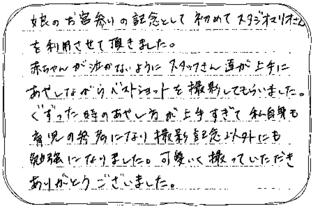 娘のお宮参りの記念として初めてスタジオマリオさん
を利用させて頂きました。
赤ちゃんが泣かないようにスタッフさん達が上手に
あやしながらベストショットを撮影してもらいました。
ぐずった時のあやし方が上手すぎて私自身も
育児の発見になり撮影記念以外にも
勉強になりました。可愛いく撮っていただき
ありがとうございました。